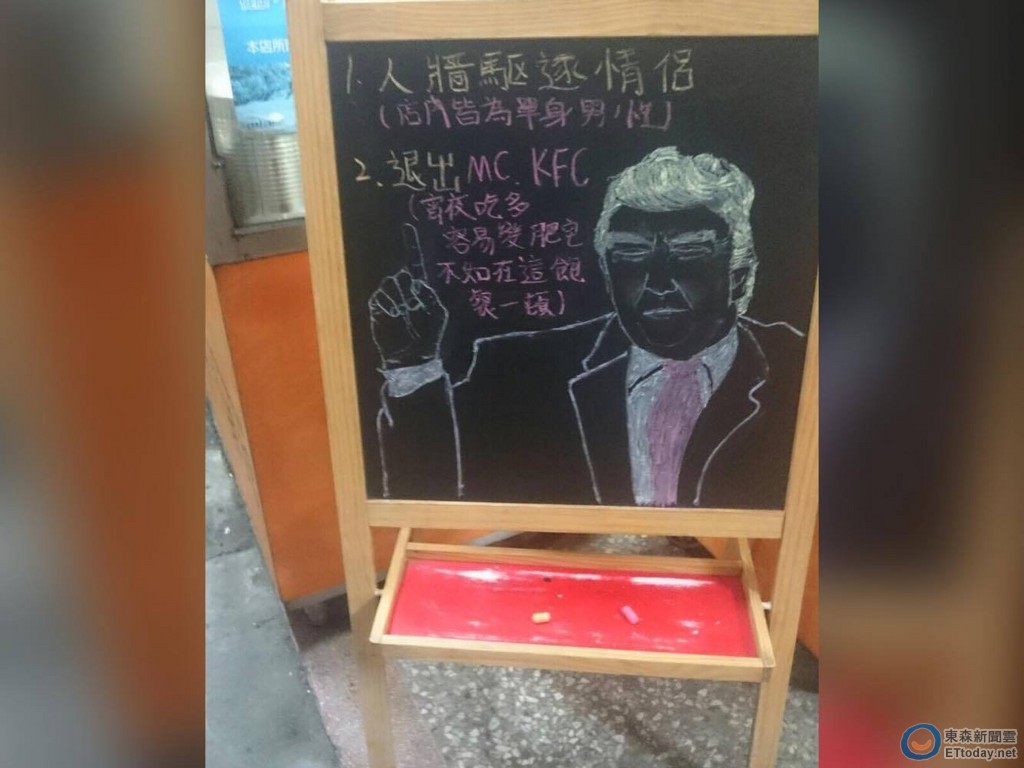 本店所
1.人牆驅逐情侶
(店內皆為單身男性)
2.退出MC.KFC
(宵夜吃多
容易變肥宅
不如在這飽
餐一頓)
東森新聞雲
ETtoday.net